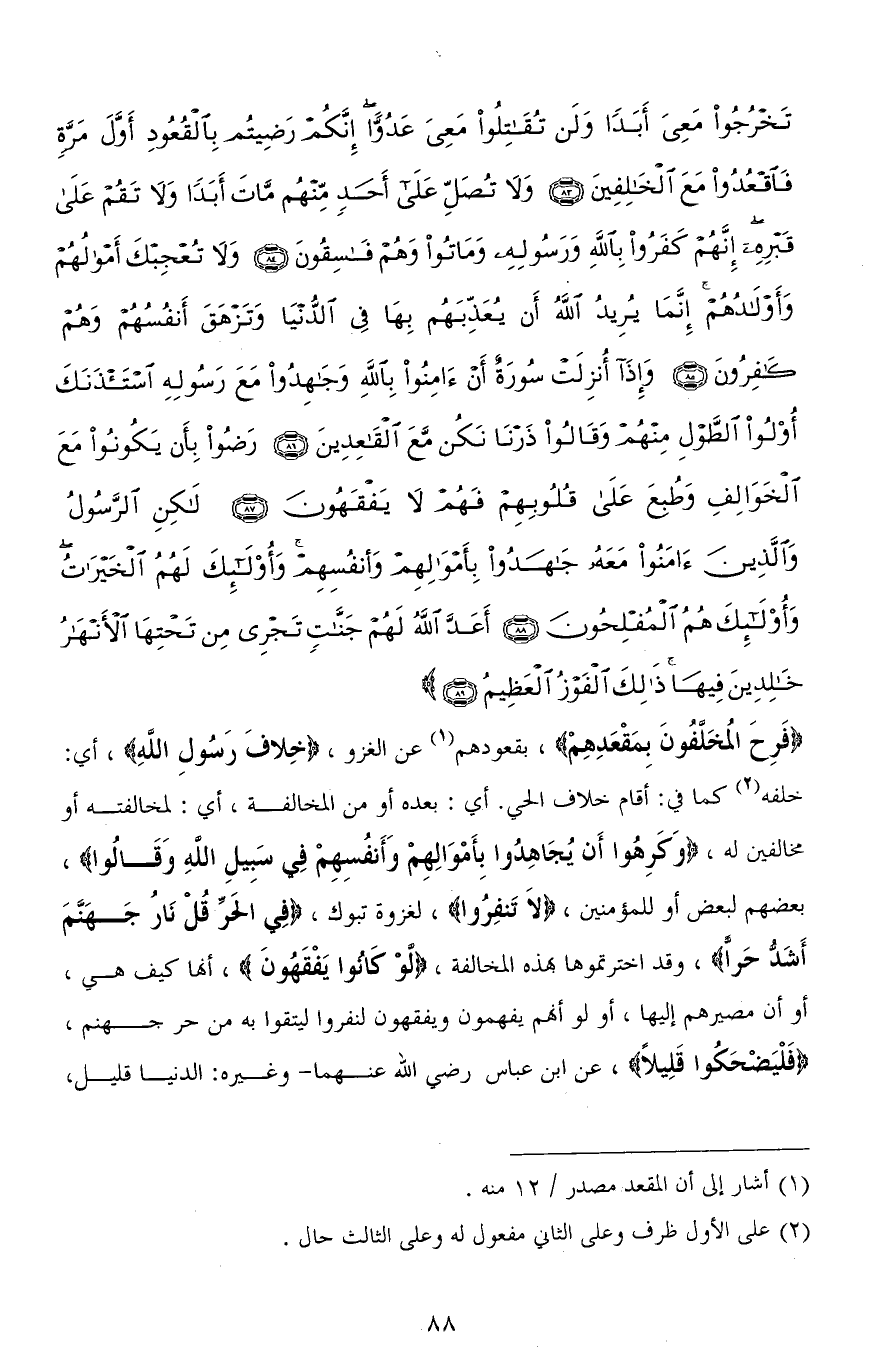 تَخْرُجُوا۟ مَعِىَ أَبَدًا وَلَن تُقَـٰتِلُوا۟ مَعِىَ عَدُوًّا ۖ إِنَّكُمْ رَضِيتُم بِٱلْقُعُودِ أَوَّلَ مَرَّةٍ
فَٱقْعُدُوا۟ مَعَ ٱلْخَـٰلِفِينَ ﴿٨٣﴾ وَلَا تُصَلِّ عَلَىٰٓ أَحَدٍ مِّنْهُم مَّاتَ أَبَدًا وَلَا تَقُمْ عَلَىٰ
قَبْرِهِۦٓ ۖ إِنَّهُمْ كَفَرُوا۟ بِٱللَّهِ وَرَسُولِهِۦ وَمَاتُوا۟ وَهُمْ فَـٰسِقُونَ ﴿٨٤﴾ وَلَا تُعْجِبْكَ أَمْوَٰلُهُمْ
وَأَوْلَـٰدُهُمْ ۚ إِنَّمَا يُرِيدُ ٱللَّهُ أَن يُعَذِّبَهُم بِهَا فِى ٱلدُّنْيَا وَتَزْهَقَ أَنفُسُهُمْ وَهُمْ
كَـٰفِرُونَ ﴿٨٥﴾ وَإِذَآ أُنزِلَتْ سُورَةٌ أَنْ ءَامِنُوا۟ بِٱللَّهِ وَجَـٰهِدُوا۟ مَعَ رَسُولِهِ ٱسْتَـْٔذَنَكَ
أُو۟لُوا۟ ٱلطَّوْلِ مِنْهُمْ وَقَالُوا۟ ذَرْنَا نَكُن مَّعَ ٱلْقَـٰعِدِينَ ﴿٨٦﴾ رَضُوا۟ بِأَن يَكُونُوا۟ مَعَ
ٱلْخَوَالِفِ وَطُبِعَ عَلَىٰ قُلُوبِهِمْ فَهُمْ لَا يَفْقَهُونَ ﴿٨٧﴾ لَـٰكِنِ ٱلرَّسُولُ
وَٱلَّذِينَ ءَامَنُوا۟ مَعَهُۥ جَـٰهَدُوا۟ بِأَمْوَٰلِهِمْ وَأَنفُسِهِمْ ۚ وَأُو۟لَـٰٓئِكَ لَهُمُ ٱلْخَيْرَٰتُ ۖ
وَأُو۟لَـٰٓئِكَ هُمُ ٱلْمُفْلِحُونَ ﴿٨٨﴾ أَعَدَّ ٱللَّهُ لَهُمْ جَنَّـٰتٍ تَجْرِى مِن تَحْتِهَا ٱلْأَنْهَـٰرُ
خَـٰلِدِينَ فِيهَا ۚ ذَٰلِكَ ٱلْفَوْزُ ٱلْعَظِيمُ ﴿٨٩﴾ ﴾
﴿فَرِحَ الْمُخَلَّفُونَ بِمَقْعَدِهِمْ﴾ ، بقعودهم(١) عن الغزو ، ﴿خِلافَ رَسُولِ اللَّهِ﴾ ، أي:
خلفه(٢) كما في: أقام خلاف الحي. أي : بعده أو من المخالفة ، أي : لمخالفته أو
مخالفين له ، ﴿وَكَرِهُوا أَن يُجَاهِدُوا بِأَمْوَالِهِمْ وَأَنفُسِهِمْ فِي سَبِيلِ اللَّهِ وَقَالُوا﴾ ،
بعضهم لبعض أو للمؤمنين ، ﴿لاَ تَنفِرُوا﴾ ، لغزوة تبوك ، ﴿فِي الْحَرِّ قُلْ نَارُ جَهَنَّمَ
أَشَدُّ حَراًّ﴾ ، وقد اخترتموها بهذه المخالفة ، ﴿لَّوْ كَانُوا يَفْقَهُونَ ﴾ ، أنها كيف هي ،
أو أن مصيرهم إليها ، أو لو أنهم يفهمون ويفقهون لنفروا ليتقوا به من حر جهنم ،
﴿فَلْيَضْحَكُوا قَلِيلاً﴾ ، عن ابن عباس رضي الله عنهما- وغيره: الدنيا قليل،
(١) أشار إلى أن المقعد مصدر / ١٢ منه .
(٢) على الأول ظرف وعلى الثاني مفعول له وعلى الثالث حال .
٨٨